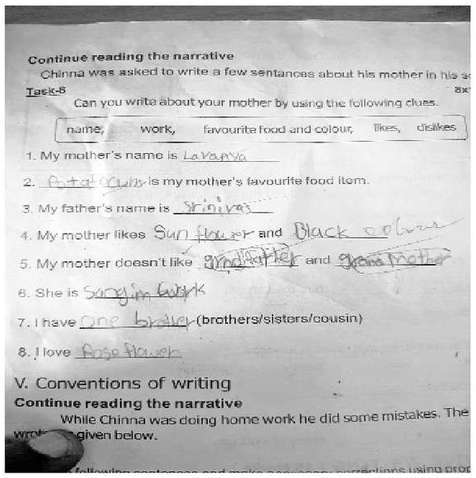 Continue reading the narrative
Chinna was asked to write a few sentences about his mother in his
Task-8 8x
Can you write about your mother by using the following clues.
name, work, favourite food and colour, likes, dislikes
1. My mother's name is Lavanya
2. is my mother's favourite food item.
3. My father's name is Srinivas
4. My mother likes Sun flower and Black colour
5. My mother doesn't like grandfather and grand Mother
6. She is work
7. I have one brother (brothers/sisters/cousin)
8. I love Rose flower
V. Conventions of writing
Continue reading the narrative
While Chinna was doing home work he did some mistakes. The
given below.
following sentences and make necessary corrections using